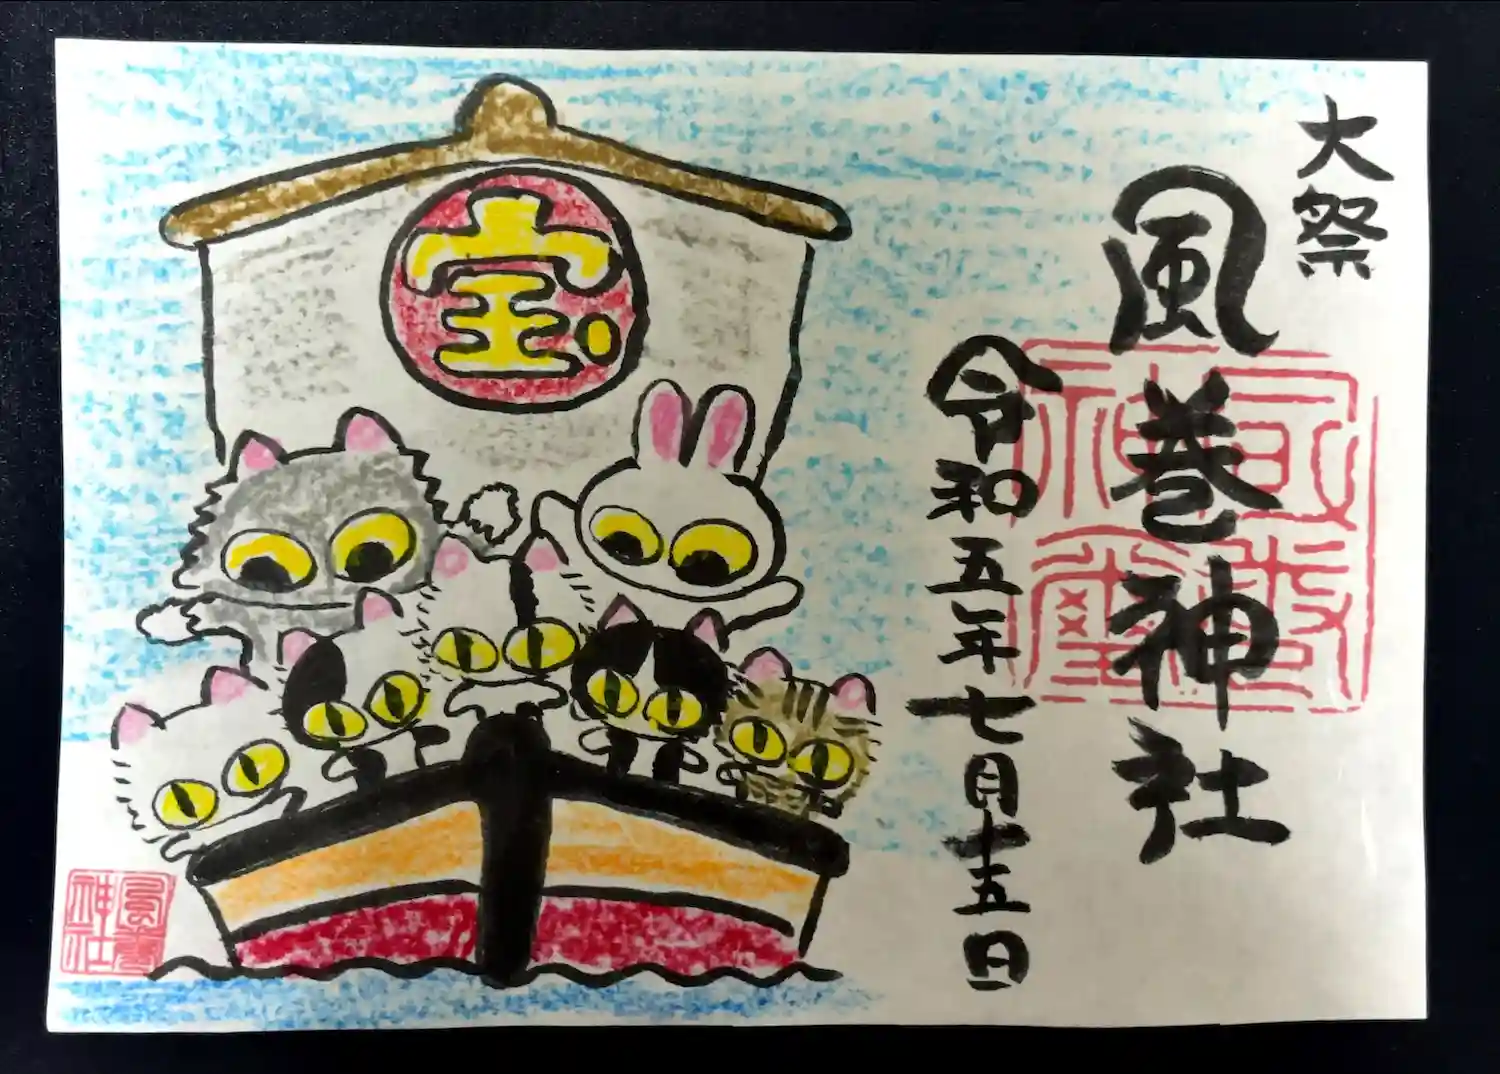 大祭
風巻神社
令和五年七月十五日
宝
風巻
神社